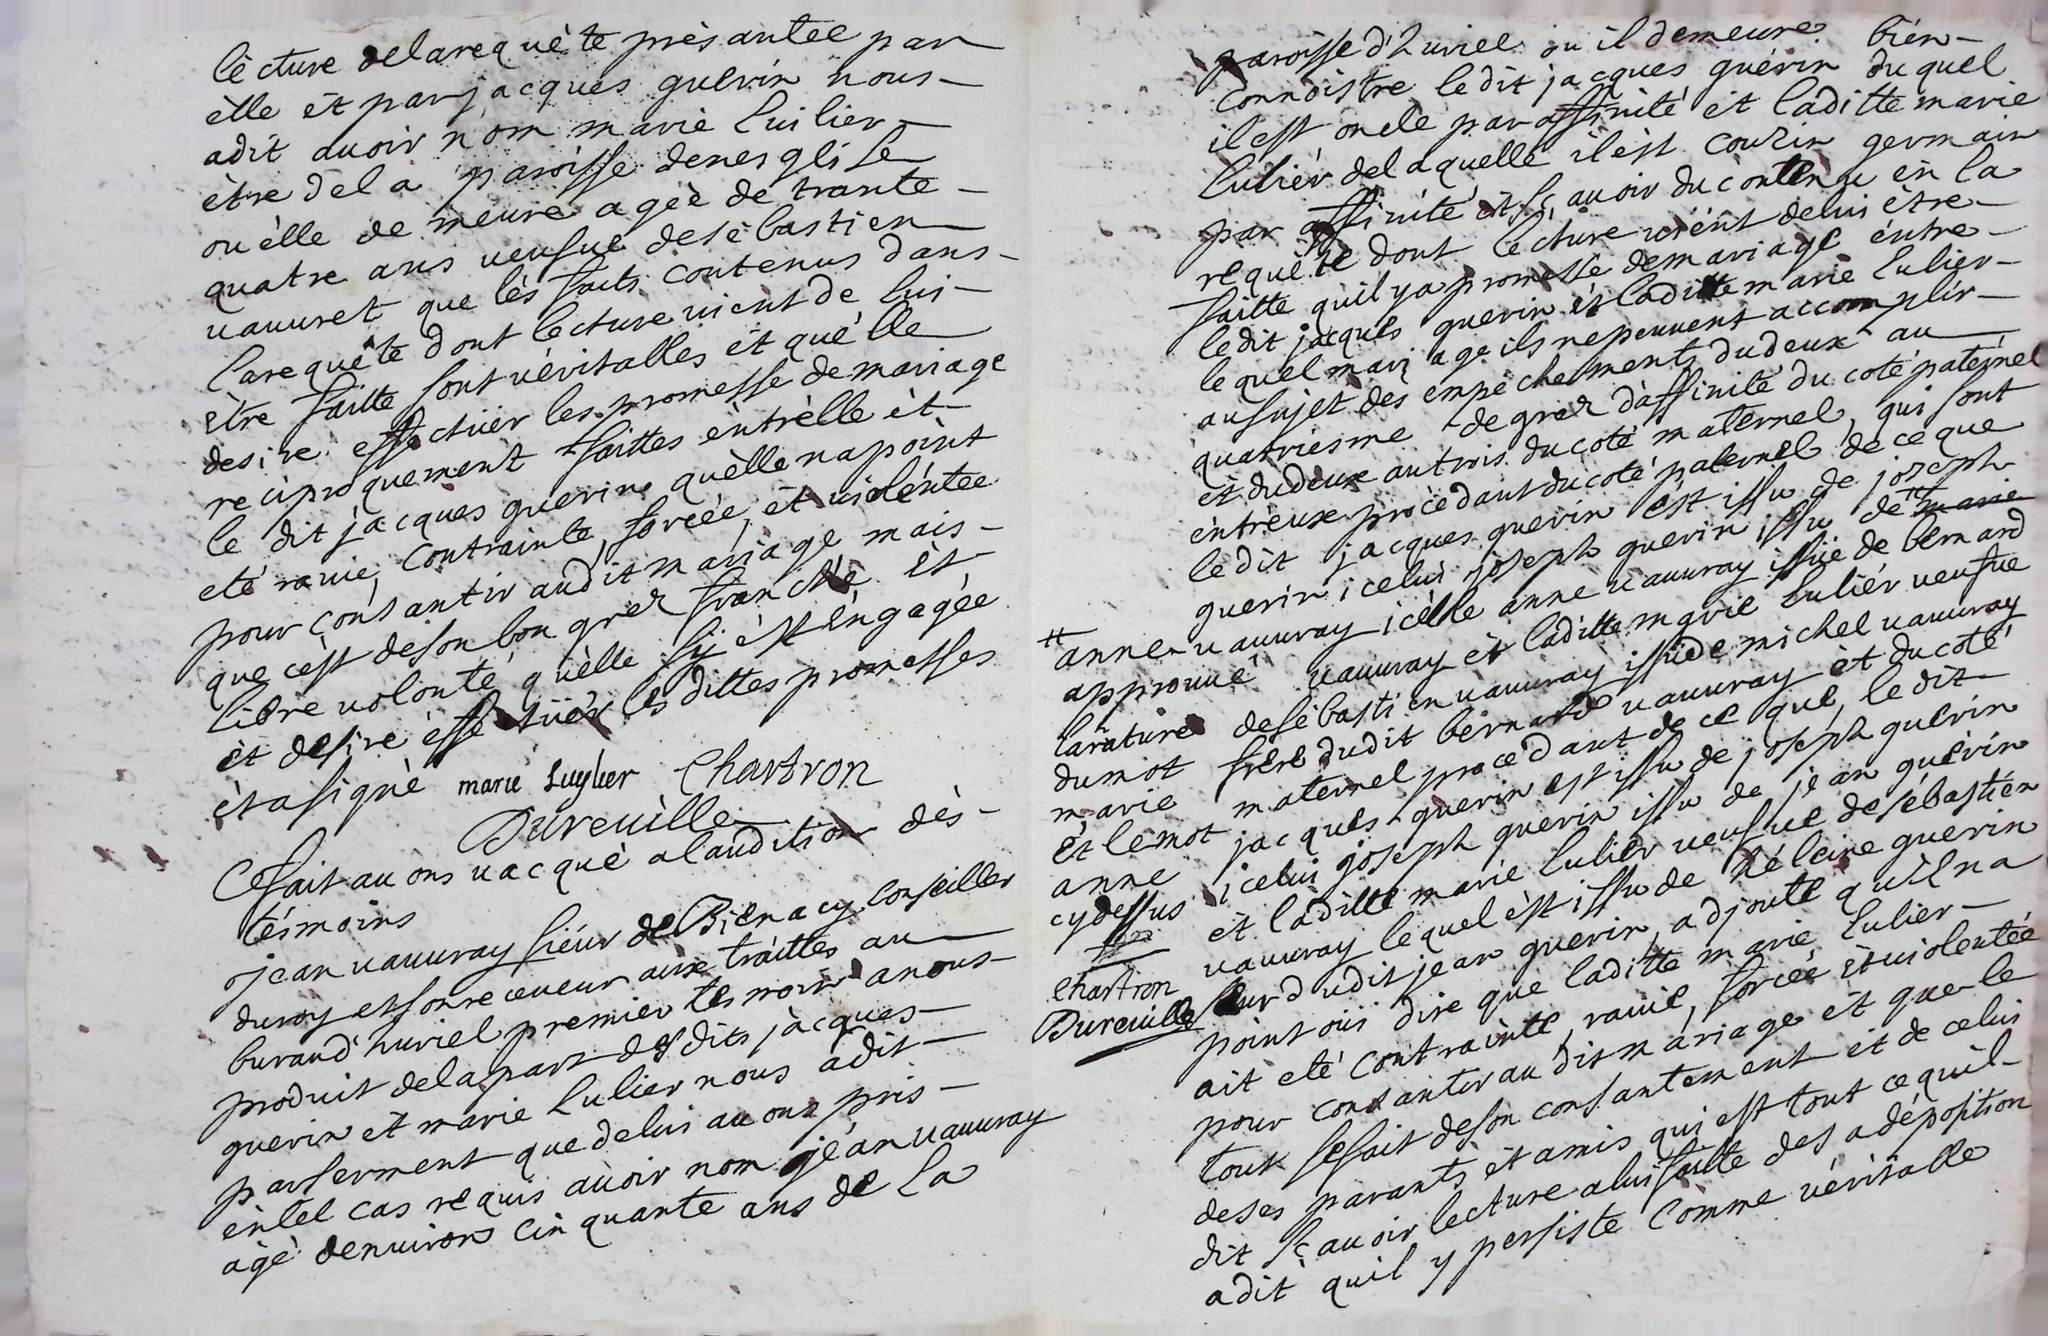 lècture delarequète prèsantee par
èlle èt par jacques guerin nous
adit avoir nom marie Luilier
ètre dela paroisse denesglise
ou èlle demeure agèè de trante
quatre ans veufue desèbastien
vauuret que lès faits contenus dans
Larequète dont lecture vient de lui
ètre faitte sont vèritables èt quèlle
desire effectuer les promesse demariage
reciproquement faittes èntrèlle èt
le dit jacques guerin, quèlle na point
eté ravie, contrainte, forcée, èt violéntee
pour consantir audit mariage mais
que cèst deson bon grez franche èt
libre volonté quèlle sij èst èngagée
èt desire effectuer les dittes promesses
èt a signè marie Luylier Chartron
Dureuille
Ce fait auons vacqué alaudition dès
tèsmoins
jean vauuray siéur de Bienacy conseiller
duroy et son receueur aux traittes au
burand'huriel premier tesmoin anous
produit delapart desdits jàcques
guerin èt marie Lulier nous adit
par serment que delui auons pris
èntel cas requis auoir nom jéan vauuray
àgè denuirons cinquante ans de La
paroisse d'huriel ou il demeure bién
connoistre ledit jacques guérin duquel
il est oncle par affinité èt laditte marie
Luliér delaquelle il èst couzin germain
par affinité èt sçauoir ducontenu èn la
requète dont lècture viént delui ètre
faitte quil ya promesse demariage èntre
ledit jacques guerin èt laditte marie Lulier
lequel mariage ils nepeuuent accomplir
ausujet des empèchements dudeux au
quatriesme degrez dàffinité du coté patérnel
èt dudeux autrois ducoté maternel, qui sont
entreux procèdant ducoté paternel de ce que
ledit jacques guerin èst issu de joseph
guerin icelui joseph guerin issu de # marie
# anne vauuray icèlle anne vauuray issüe de bernard
approuué vauuray èt laditte marie Luliér veufue
larature desèbastien vauuray issu de michel vauuray
dumot frére dudit bèrnard vauuray èt ducoté
marie maternel procèdant de ce que, ledit
èt lemot jacques guerin est issu de joseph guerin
anne icelui joseph guerin issu de jean guèrin
cydessus èt laditte marie Lulier veufue de sébastién
vauuray lequel èst issu de hélaine guerin
Chartron
Dureuille seur dudit jean guerin, adjoute quil na
point oüi dire que laditte marie Lulier
ait eté contrainte, ravie, forcée èt violentée
pour consantir audit màriage et que le
tout se fait deson consantement et de celui
deses parants èt amis qui est tout ce quil
dit sçauoir lecture alui faitte desadéposition
adit quil y persiste comme véritable